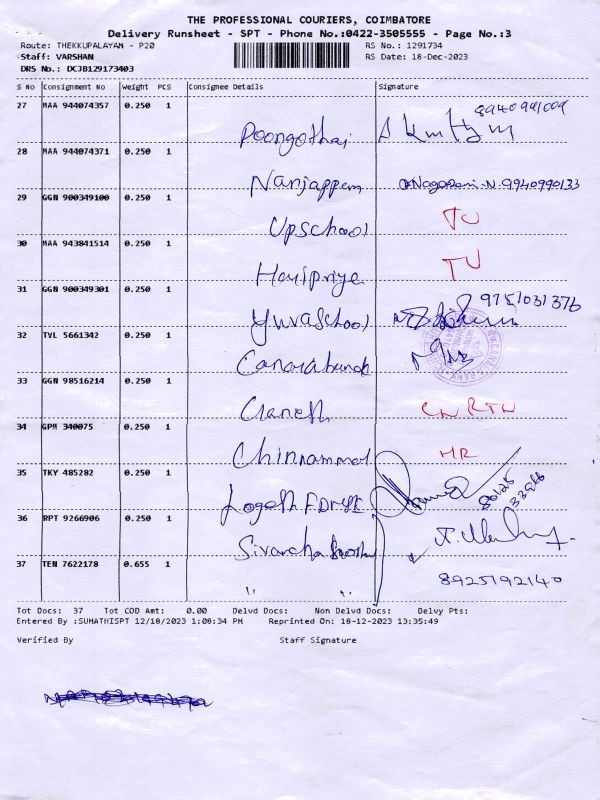 THE PROFESSIONAL COURIERS, COIMBATORE
Delivery Runsheet - SPT - Phone No.:0422-3505555 - Page No.:3
Route: THEKKUPALAYAM - P20 RS No.: 1291734
Staff: VARSHAN RS Date: 18-Dec-2023
DRS No.: DCJB129173403
S No Consignment No Weight PCS Consignee Details Signature
27 MAA 944074357 0.250 1 Poongothai 8940991009
28 MAA 944074371 0.250 1 Nanjappan Nagamani-N. 9940990133
29 GGN 900349100 0.250 1 Upschool TU
30 MAA 943841514 0.250 1 Haripriya TU
31 GGN 900349301 0.250 1 Yuvaschool 9751031376
32 TVL 5661342 0.250 1 Canarabank
33 GGN 98516214 0.250 1 Ganesh CN RTN
34 GPM 340075 0.250 1 Chinnammal MR
35 TKY 485282 0.250 1 Logesh
36 RPT 9266906 0.250 1
37 TEN 7622178 0.655 1 " " 8925192140
Tot Docs: 37 Tot COD Amt: 0.00 Delvd Docs: Non Delvd Docs: Delvy Pts:
Entered By :SUMATHISPT 12/18/2023 1:08:34 PM Reprinted On: 18-12-2023 13:35:49
Verified By Staff Signature